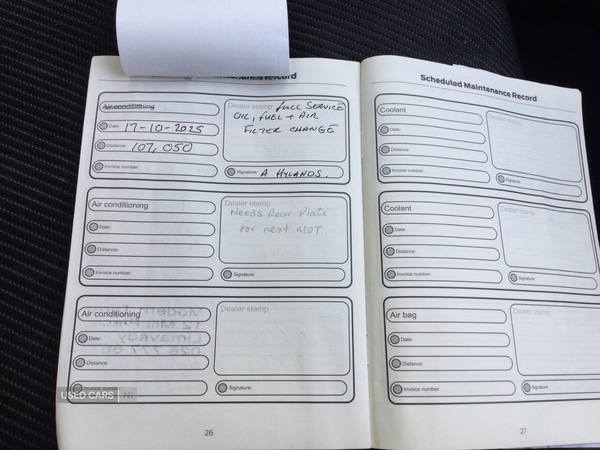 Maintenance Record
Air conditioning
Date: 17-10-2025
Distance: 107,050
Invoice number:
Dealer stamp FULL SERVICE
OIL, FUEL + AIR
FILTER CHANGE
Signature: A HYLANDS.
Air conditioning
Date:
Distance:
Invoice number:
Dealer stamp
Needs Rear Plate
for next MOT
Signature:
Air conditioning
Date:
Distance:
Invoice number:
Dealer stamp
Signature:
26
Scheduled Maintenance Record
Coolant
Date:
Distance:
Invoice number:
Dealer stamp
Signature:
Coolant
Date:
Distance:
Invoice number:
Dealer stamp
Signature:
Air bag
Date:
Distance:
Invoice number:
Dealer stamp
Signature:
27
USED CARS NI